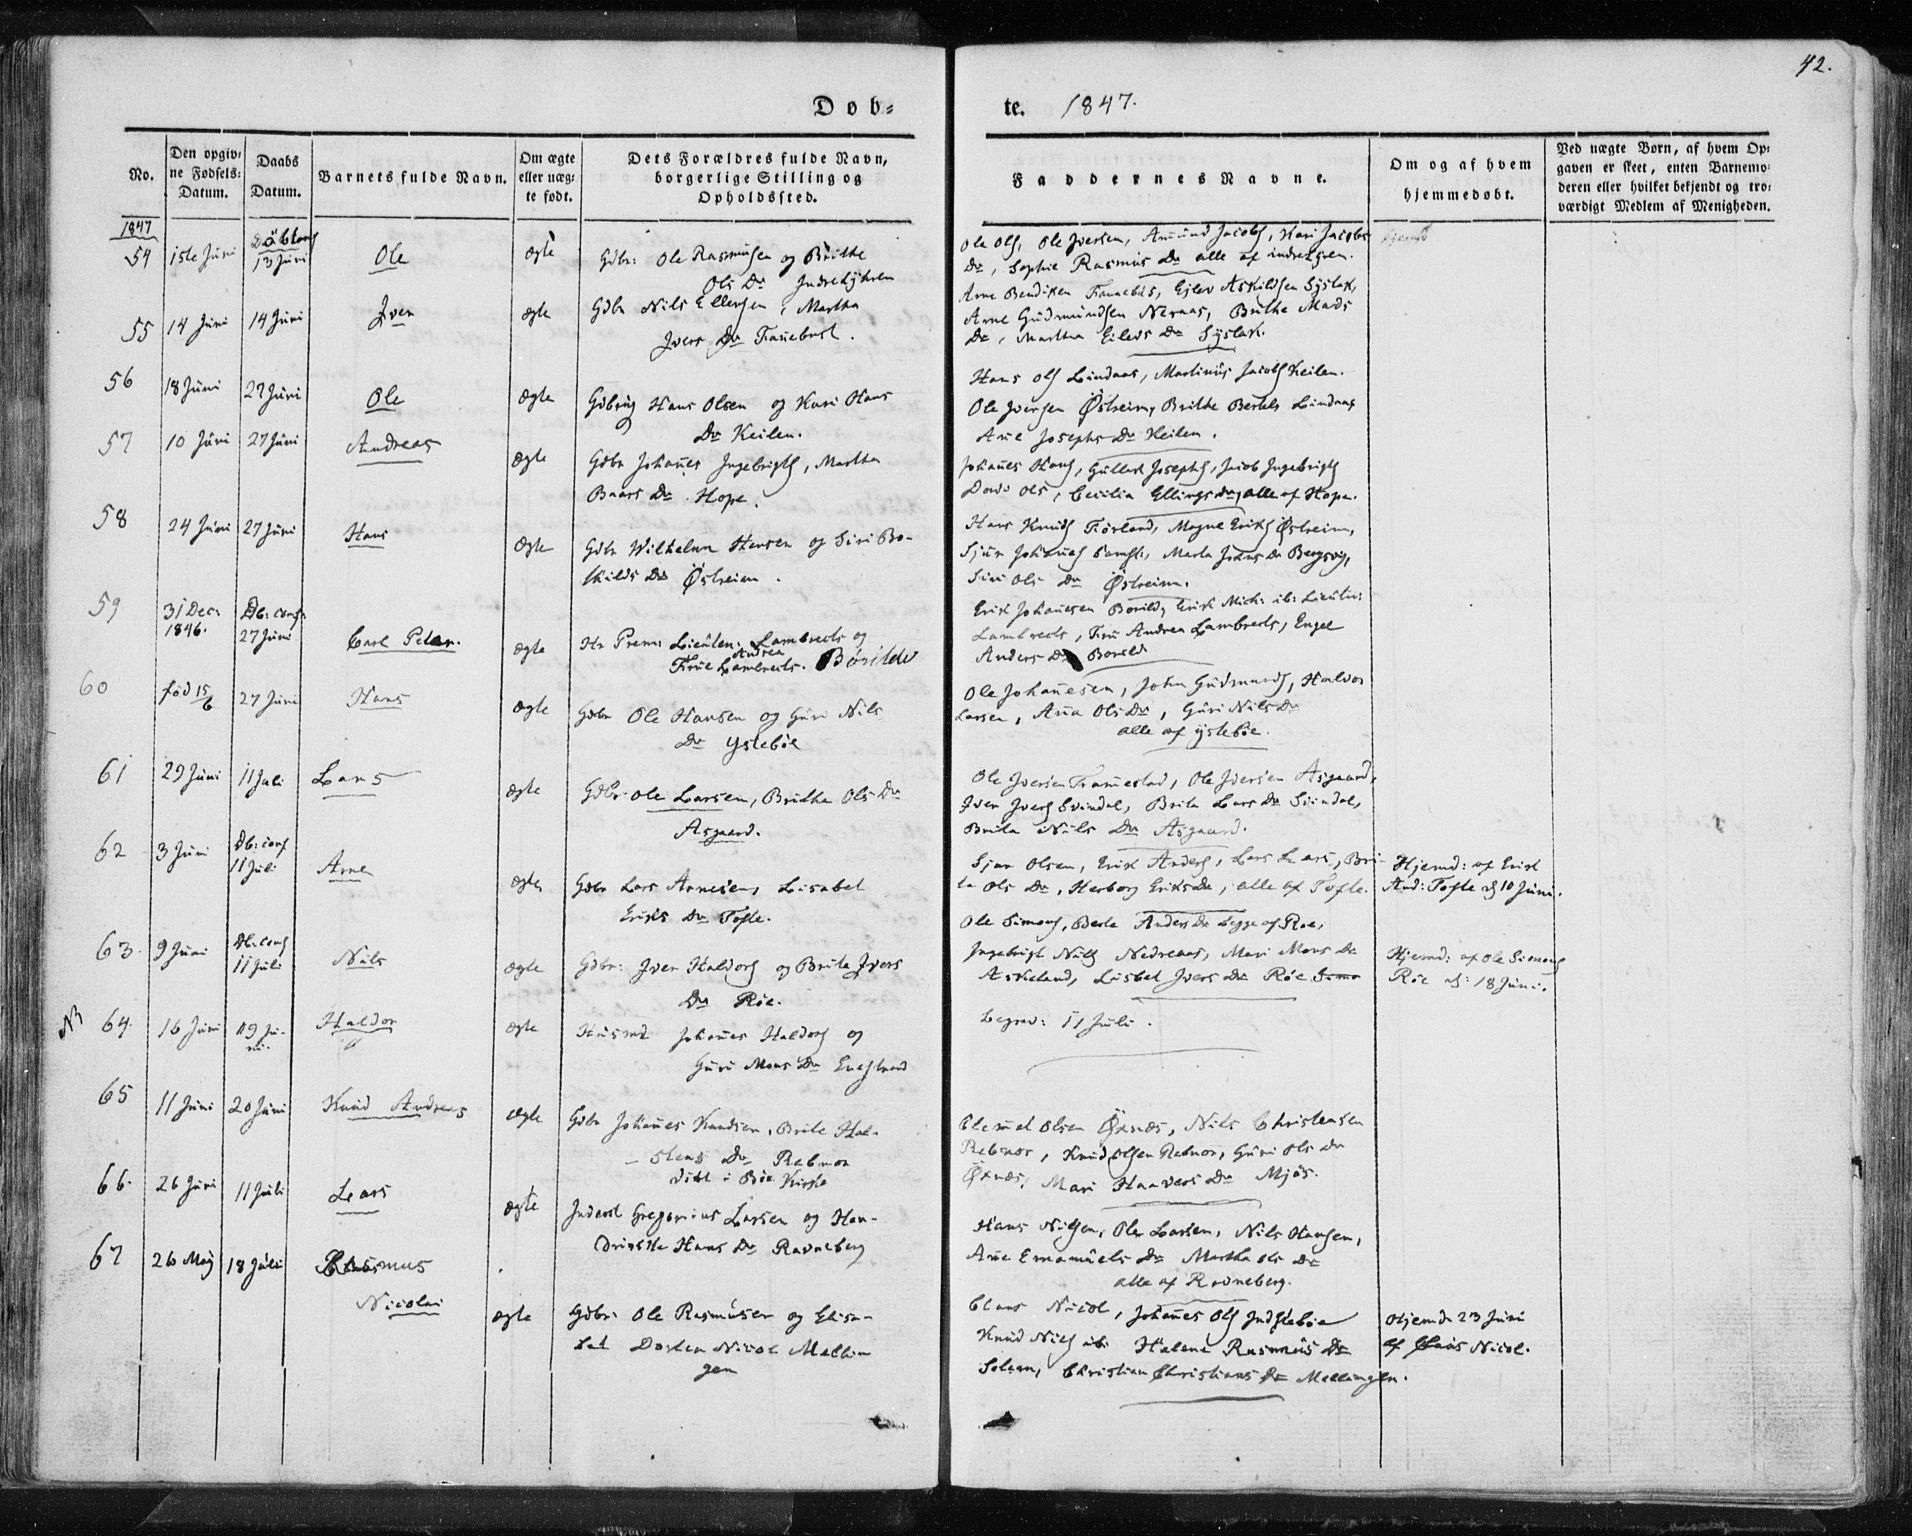 42.
Døb-
te. 1847.
No.
Den opgiv-
ne Fødsels-
Datum.
Daabs
Datum.
Barnets fulde Navn.
Om ægte
eller uæg-
te født.
Dets Forældres fulde Navn,
borgerlige Stilling og
Opholdssted.
Faddernes Navne.
Om og af hvem
hjemmedøbt.
Ved uægte Børn, af hvem Op-
gaven er skeet, enten Barnemo-
deren eller hvilket bekjendt og tro-
værdigt Medlem af Menigheden.
1847
54 1ste Juni 13 Juni Ole ægte Gdbr: Ole Rasmusen og Brithe
Ols Dr
Ole Ols, Ole Iversen, Amund Jacobs, Kari Jacobs
Dr, Sophie Rasmus Dr alle af
55 14 Juni 14 Juni Iver ægte Gdbr Nils Ellengsen, Martha
Ivers Dr
Arne Gudmundsen Neraas, Brithe Mads
Dr, Martha Eilevs Dr Syslak.
56 18 Juni 27 Juni Ole ægte Gdbrug Hans Olsen og Kari Hans
Dr Keilen.
Hans Ols Lindaas, Martinus Jacobs Keilen.
Ole Iversen Østreim, Brithe Bertels Lindaas
Ane Josephs Dr Keilen.
57 10 Juni 27 Juni Andreas ægte Gdbr Johannes Ingebrigts, Martha
Baars Dr Hope.
Johannes Hans, Gullak Josephs, Jacob Ingebrigts
Ols, Cecilia Ellings Dr, alle af Hope.
58 24 Juni 27 Juni Hans ægte Gdbr Wilhelm Hansen og Siri Bo-
skilds Dr Østreim.
Hans Knuds Førland, Magne Eriks Østreim,
Sjur Johannes, Marta Johns Dr Bergsvig,
Siri Ols Dr Østreim.
59 31 Dec: 1846. Db: conf: 27 Juni Carl Peter. ægte Hr Prem: Lieuten: Lambrects og
Frue Andrea Lambrects. Børilde
Erik Johannesen Borild, Erik Mich: ib: Lieuten:
Lambrects, Fru Andrea Lambrects, Engel
Anders Dr Borild
60 fød 15/6 27 Juni Hans ægte Gdbr Ole Hansen og Guri Nils
Dr Ystebøe
Ole Johannesen, John Gudmunds, Haldor
Larsen, Ana Ols Dr, Guri Nils Dr
alle af Ystebøe.
61 29 Juni 11 Juli Lars ægte Gdbr. Ole Larsen, Britha Ols Dr
Asgaard.
Ole Iversen, Ole Iversen Asgaard,
Iver Ivers Svindal, Brita Lars Dr Svindal,
Brita Nils Dr Asgaard.
62 3 Juni Db: conf 11 Juli Arne ægte Gdbr Lars Arnesen, Lisabet
Eriks Dr Tofte.
Sjur Olsen, Erik Anders, Lars Lars, Bri-
ta Ols Dr, Herborg Eriks Dr, alle af Tofte.
Hjemd: af Erik
And: Tofte d 10 Juni.
63. 9 Juni Db: conf 11 Juli Nils ægte Gdbr: Iver Haldors og Brita Ivers
Dr Røe.
Ole Simons, Berte Anders Dr begge af Roe,
Ingebrigt Nils Nedreaas, Mari Mons Dr
Askeland, Lisbet Ivers Dr Røe Simo
Hjemd: af Ole Simons
Røe d: 18 Juni.
NB 64. 16 Juni 19 Ju-
ni. Haldor ægte Husmd Johannes Haldors og
Guri Mons Dr
Begrav: 11 Juli.
65 11 Juni 20 Juni Knud Andreas ægte Gdbr Johannes Knudsen, Brite Hal-
stens Dr Rebnor
viet i Bøe Kirke
Clemet Olsen Øxnæs, Nils Christensen
Rebnor, Knud Olsen Rebnor, Guri Ols Dr
Øxnæs, Mari Haavers Dr Mjøs.
66. 26 Juni 11 Juli Lars ægte Inderst Gregorius Larsen og Hen-
drikke Hans Dr Ravneberg
Hans Nilsen, Ole Larsen, Nils Hansen,
Ane Emanuels Dr Martha Ols Dr
alle af Ravneberg.
67 26 Maj 18 Juli Rasmus
Nicolai ægte Gdbr. Ole Rasmusen og Elisa-
bet Dortea Nicol Mellin-
gen
Claus Nicol, Johannes Ols Indstebøe
Knud Nils ib: Halene Rasmus Dr
Soleim, Christian Christians Dr Mellingen.
Hjemd 23 Juni
af Claus Nicol.